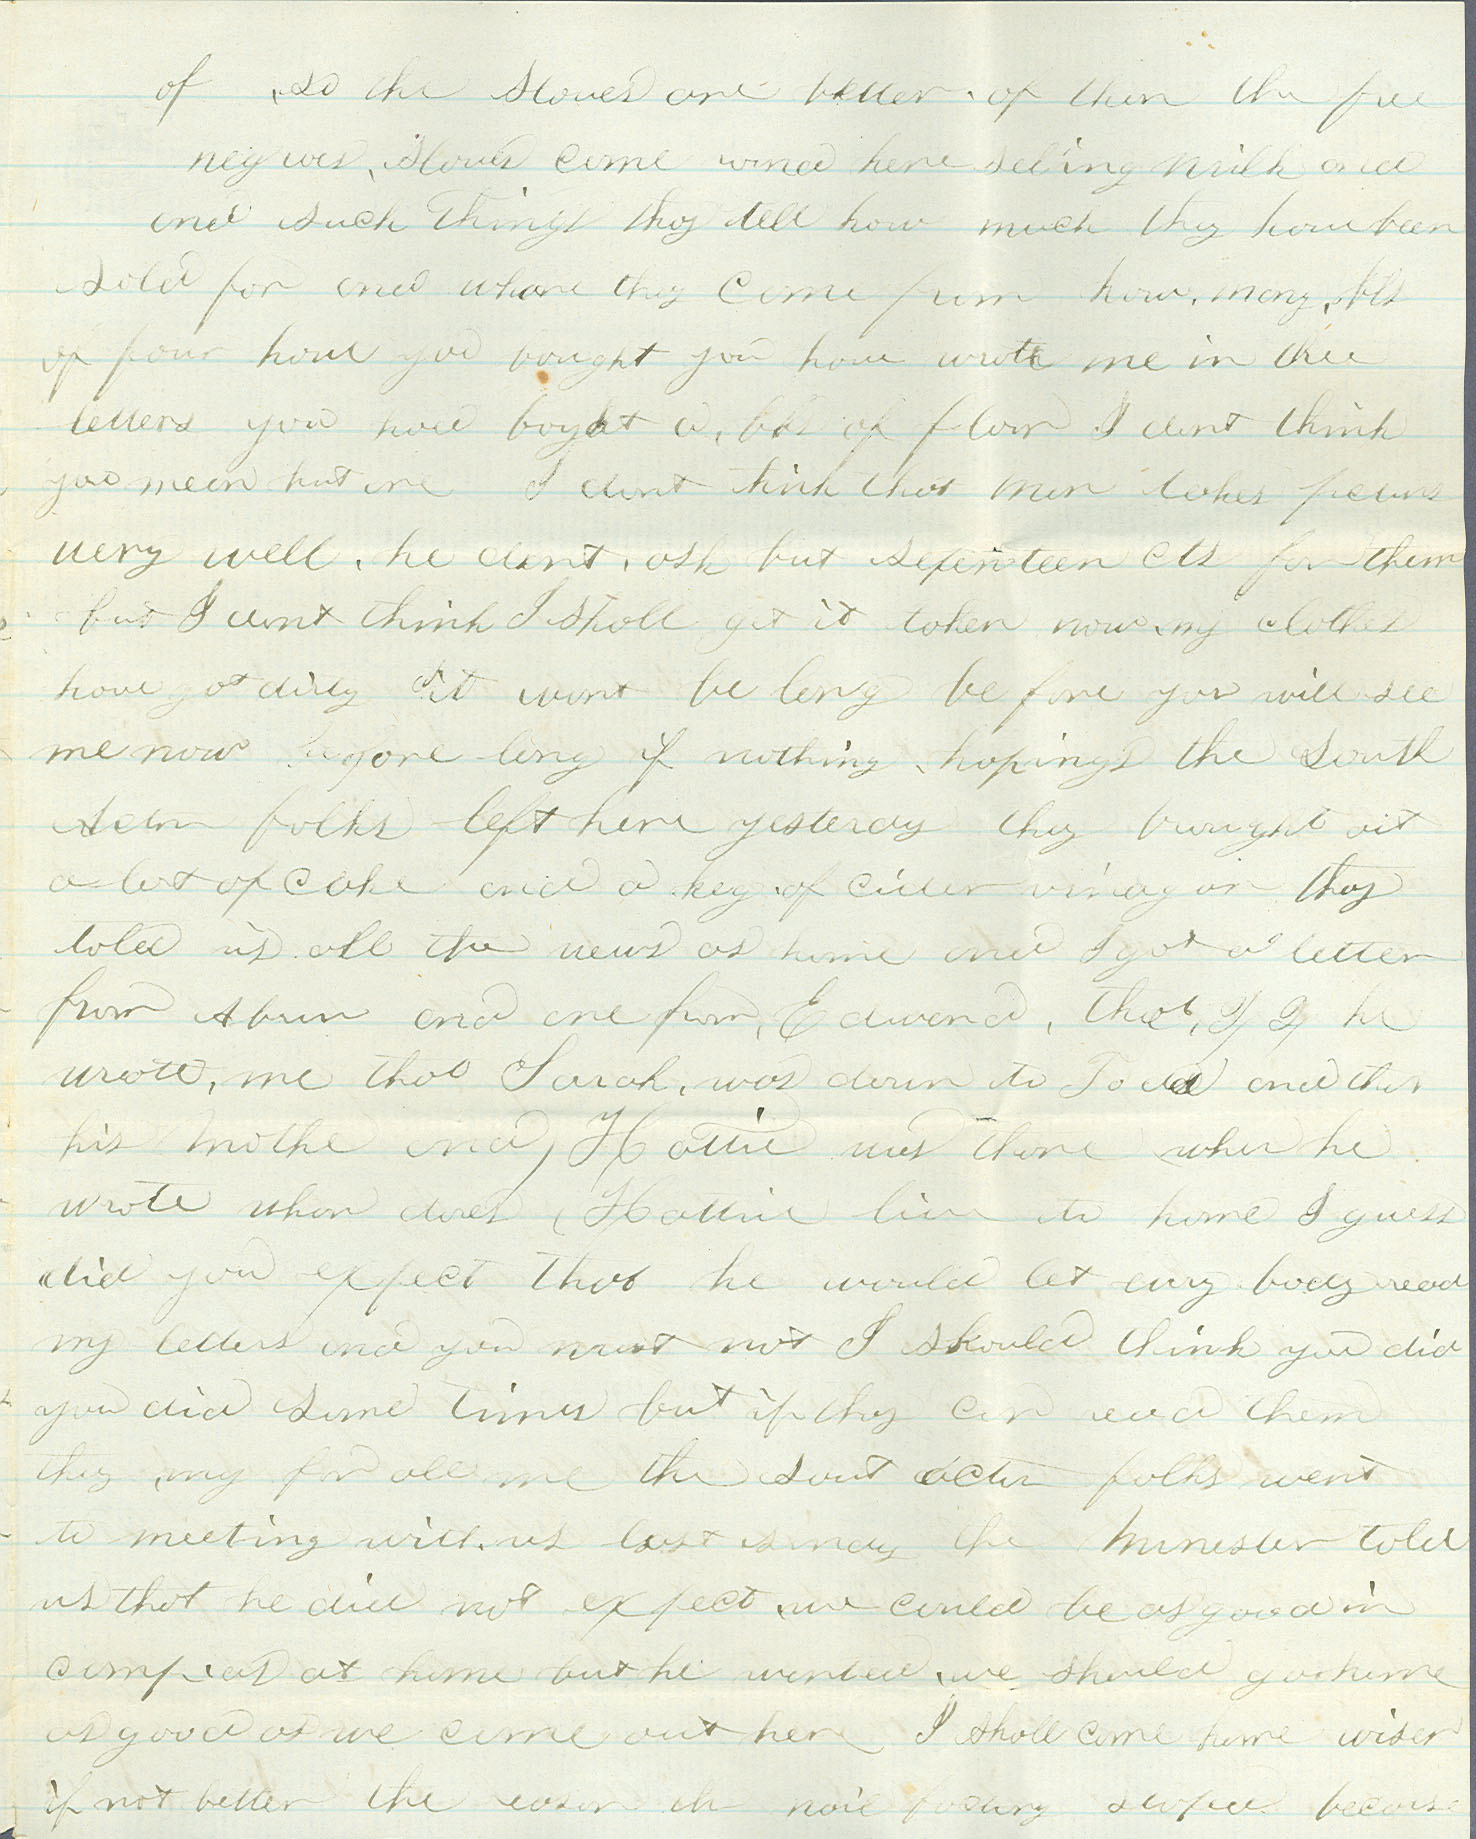 of so the Slaves are better of then the free
negroes, Slaves come round here selling milk and
and such things they tell how much they have been
sold for and whare they come frum how many bls
of flour have you bought you have wrote me in thre
letters you had bought a bls of flour I dont think
you mean but one I dont think that man takes picturs
very well he dont ask but sefenteen cts for them
but I dont think I shall get it taken now my clothes
have got dirty it wont be long be fore you will see
me now be gore long if nothing hapings the South
Acton folks left here yesterday they brought out
a lot of cake and a keg of cider vinagar they
told us all the news as home and I got a letter
from Abram and one from, Edward, that, he
wrote, me that Sarah, was down to Todd and that
his Mothe and, Hattie was there when he
wrote whare does Hattie live to home I guess
did you expect that he would let evry body read
my letters and you must not I should think you did
you did some times but if they can read them
they my for all me the Sout acton folks went
to meeting with us last sunday the Minester told
us that he did not expect we could be as good in
camp as at home but he wanted we should go home
as good as we come out here I shall come home wiser
if not better the reason the nail factory stoped because